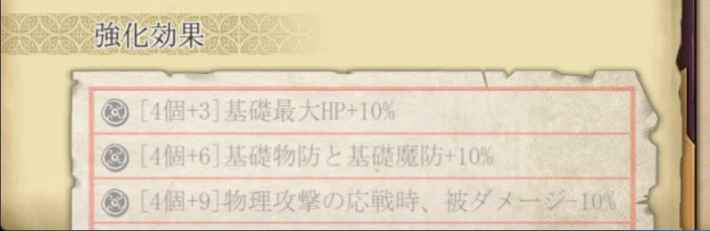 強化効果
[4個+3]基礎最大HP+10%
[4個+6]基礎物防と基礎魔防+10%
[4個+9]物理攻撃の応戦時、被ダメージ-10%